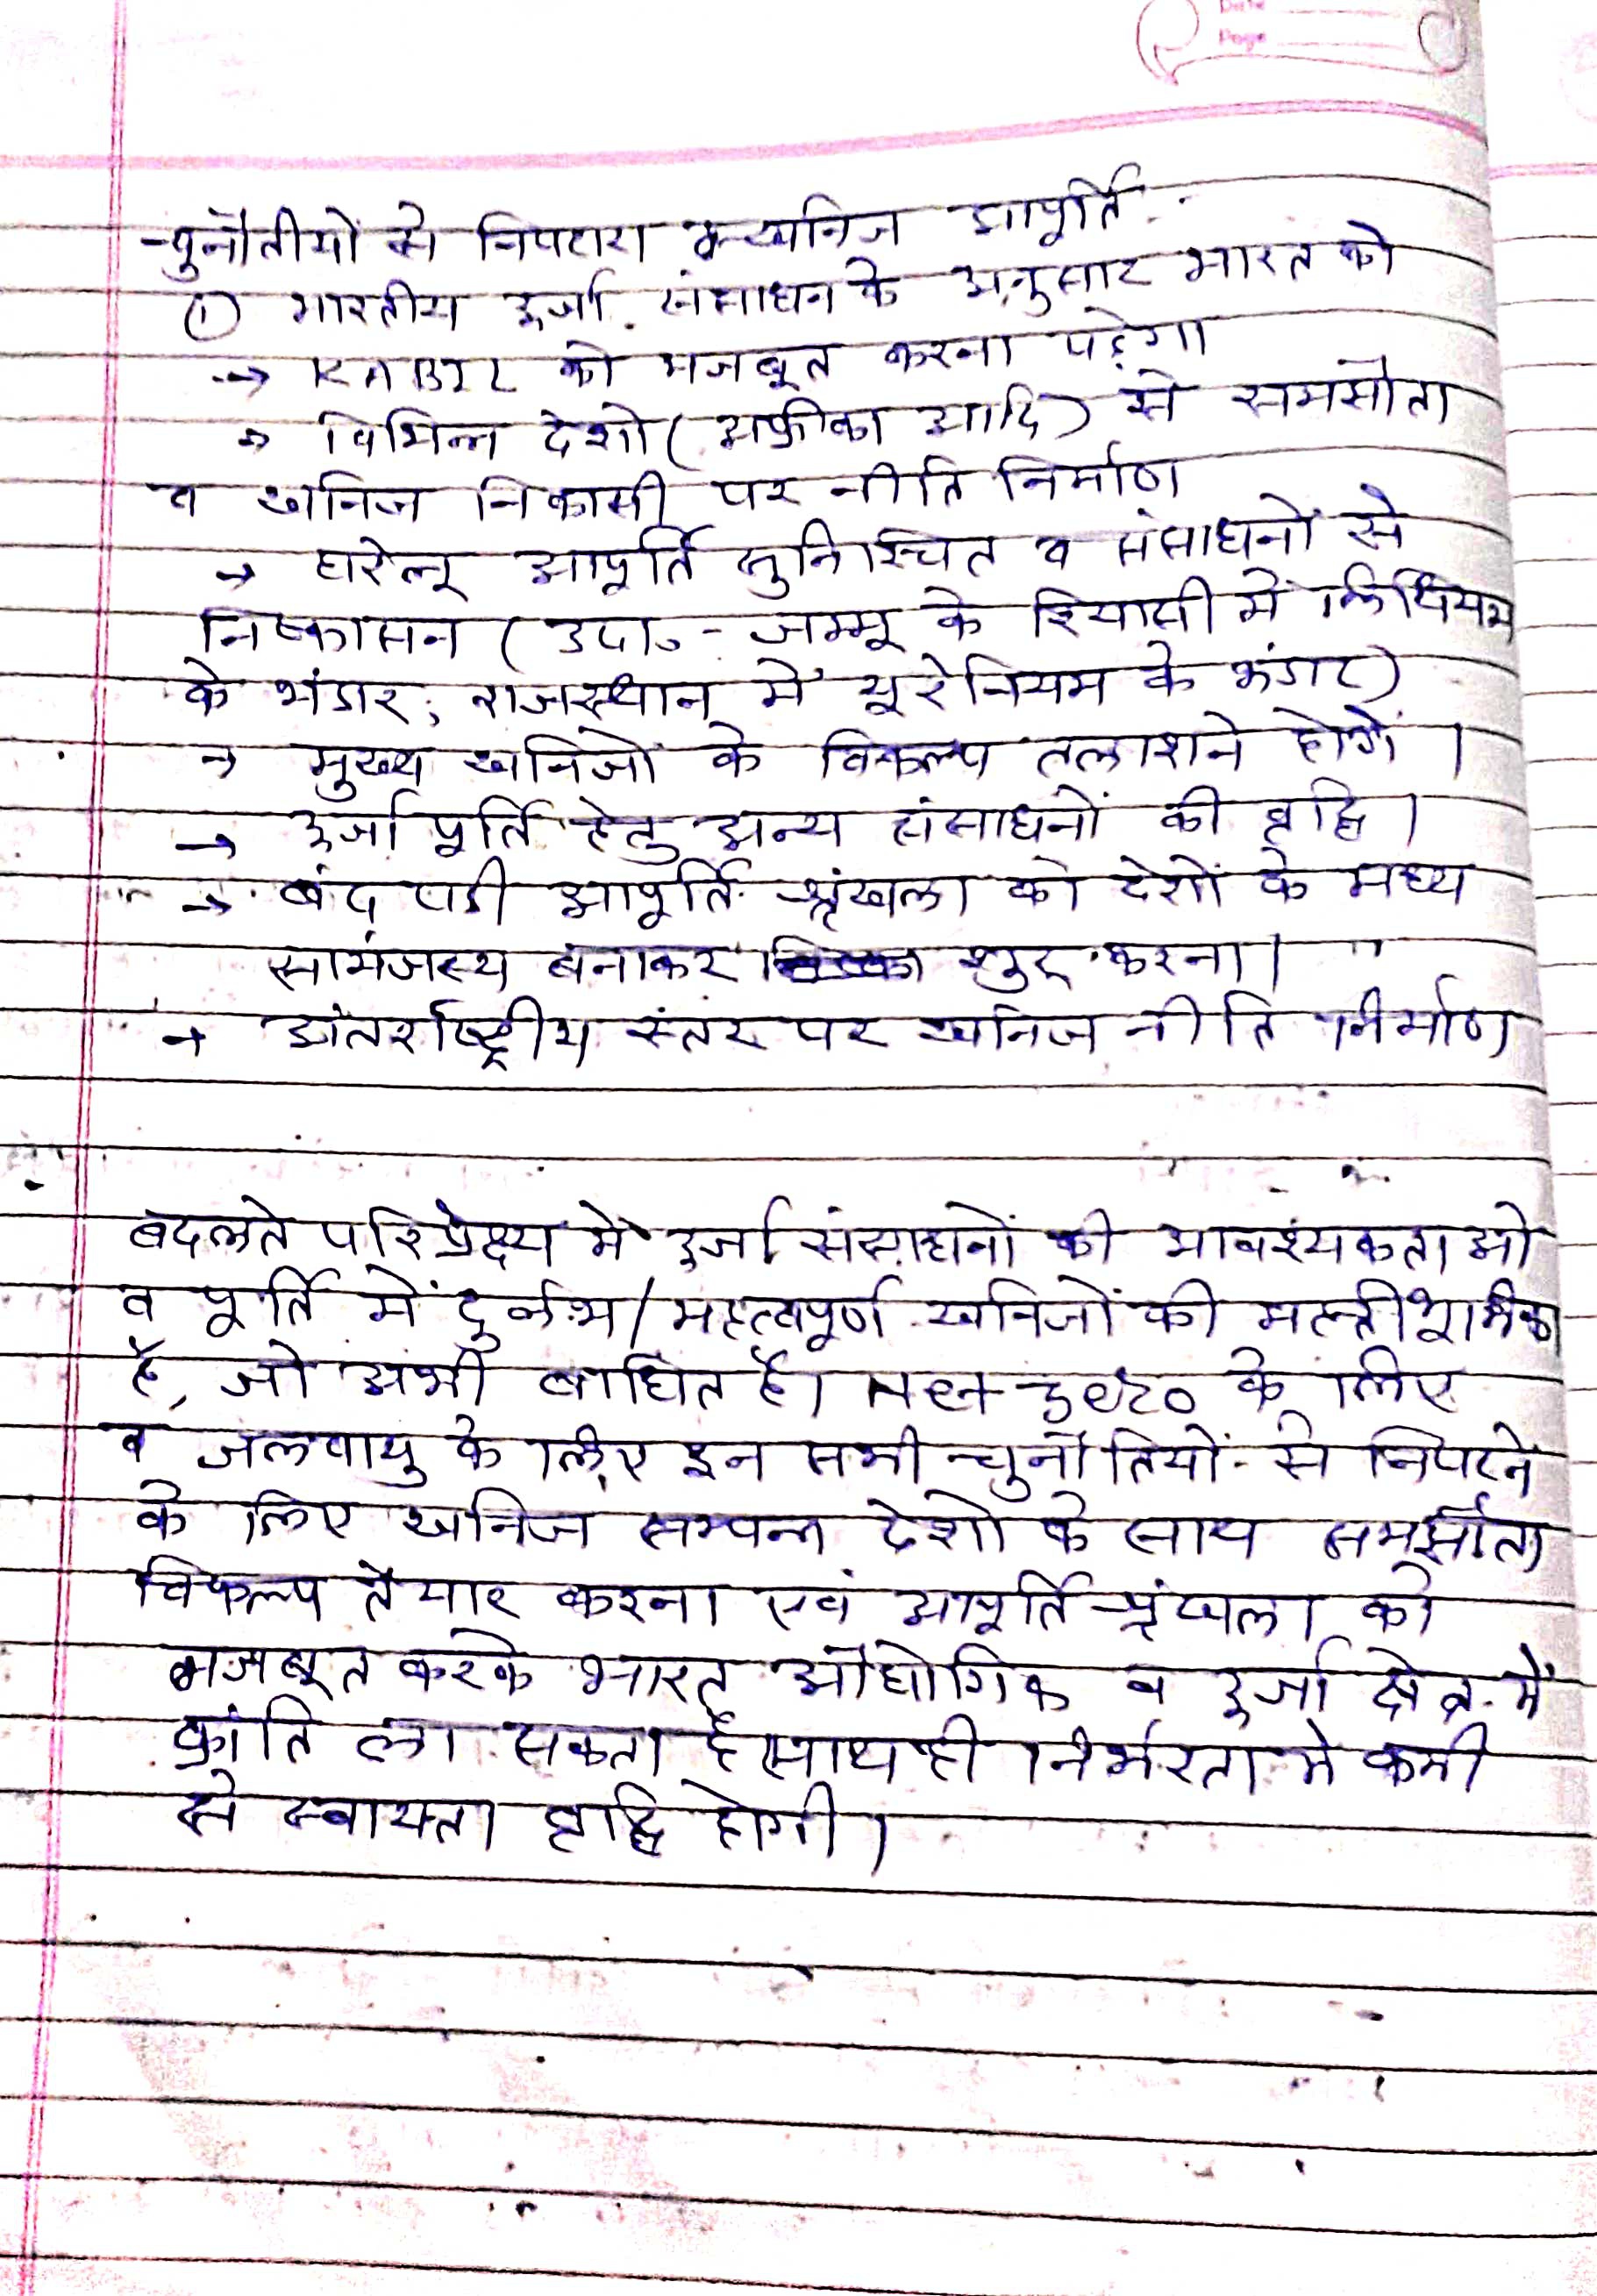 Date
Page
चुनौतीयों से निपटारा व खनिज आपूर्ति
① भारतीय उर्जा संसाधन के अनुसार भारत को
→ KABIL को मजबूत करना पड़ेगा
→ विभिन्न देशो (अफ्रीका आदि) से समसौता
व खनिज निकासी पर नीति निर्माण
→ घरेलू आपूर्ति सुनिश्चित व संसाधनों से
निष्कासन (उदा॰ - जम्मू के रियासी में लिथियम
के भंडार, राजस्थान में यूरेनियम के भंडार)
→ मुख्य खनिजों के विकल्प तलाशने होगें ।
→ उर्जा पूर्ति हेतु अन्य संसाधनों की वृद्धि ।
→ बंद पडी आपूर्ति श्रृंखला को देशों के मध्य
सामंजस्य बनाकर शुरू करना ।
→ अंतर्राष्ट्रीय स्तर पर खनिज नीति निर्माण
बदलते परिप्रेक्ष्य में उर्जा संसाधनों की आवश्यकताओ
व पूर्ति में दुर्लभ / महत्वपूर्ण खनिजों की महत्ती भूमिका
है, जो अभी बाधित है। Net-zero के लिए
व जलवायु के लिए इन सभी चुनौतियों से निपटने
के लिए खनिज सम्पन्न देशो के साथ समझौता
विकल्प तैयार करना एवं आपूर्ति श्रृंखला को
मजबूत करके भारत औद्योगिक व उर्जा क्षेत्र में
क्रांति ला सकता है साथ ही निर्भरता में कमी
से स्वायत्ता वृद्धि होगी।